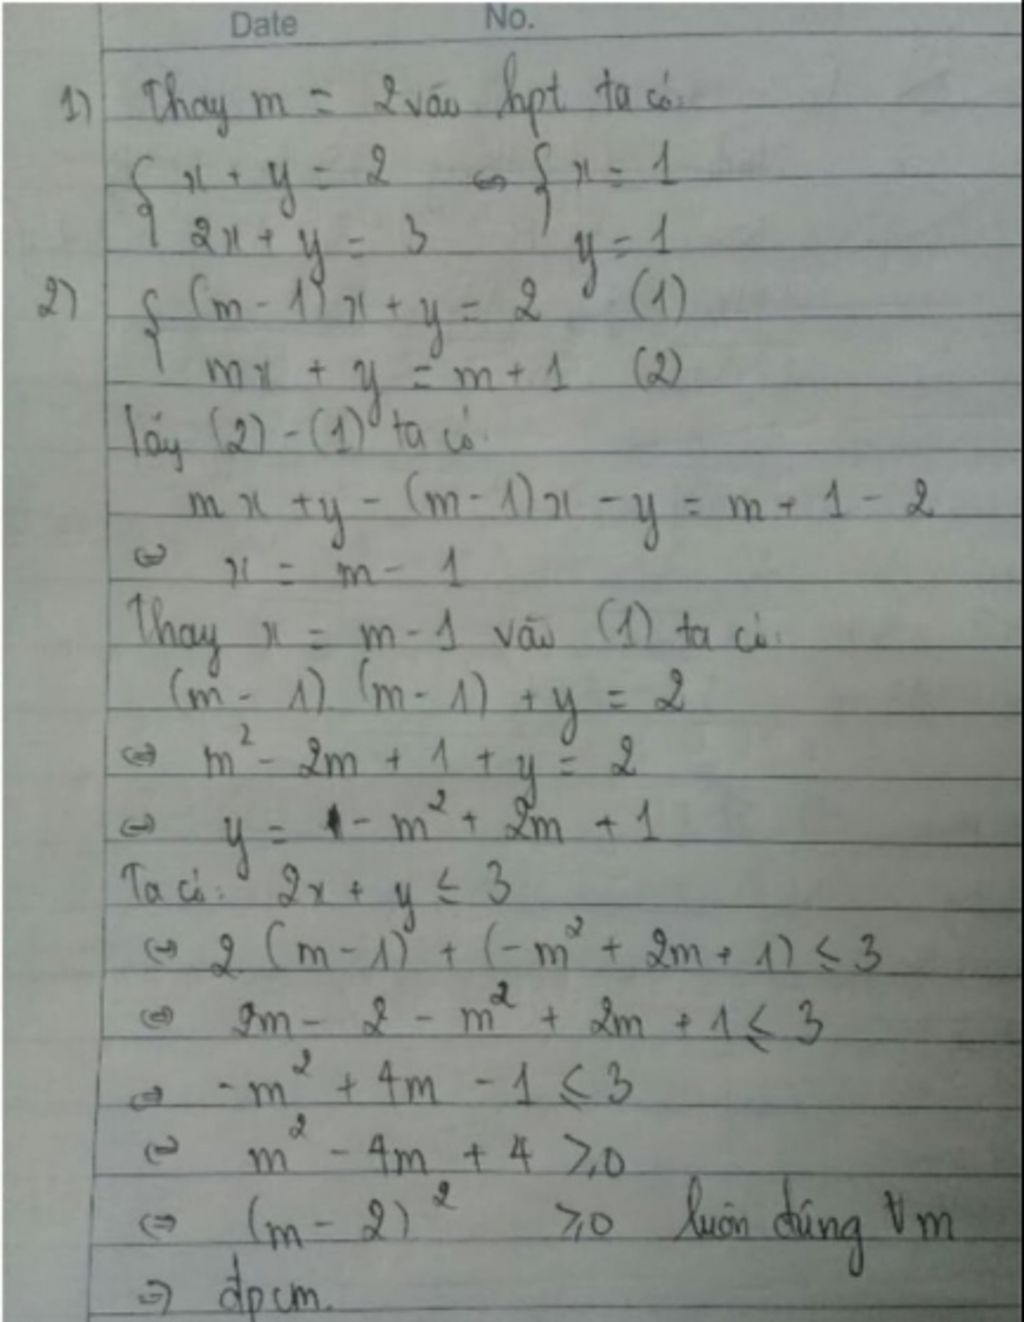 Date No.
1) Thay m = 2 vào hpt ta có:
{ x + y = 2 ⇔ { x = 1
2x + y = 3 y = 1
2) { (m - 1) x + y = 2 (1)
mx + y = m + 1 (2)
lấy (2) - (1) ta có:
mx + y - (m - 1)x - y = m + 1 - 2
⇔ x = m - 1
Thay x = m - 1 vào (1) ta có:
(m - 1) (m - 1) + y = 2
⇔ m² - 2m + 1 + y = 2
⇔ y = - m² + 2m + 1
Ta có: 2x + y ≤ 3
⇔ 2 (m - 1) + (- m² + 2m + 1) ≤ 3
⇔ 2m - 2 - m² + 2m + 1 ≤ 3
⇔ - m² + 4m - 1 ≤ 3
⇔ m² - 4m + 4 ≥ 0
⇔ (m - 2)² ≥ 0 luôn đúng ∀ m
⇒ đpcm.